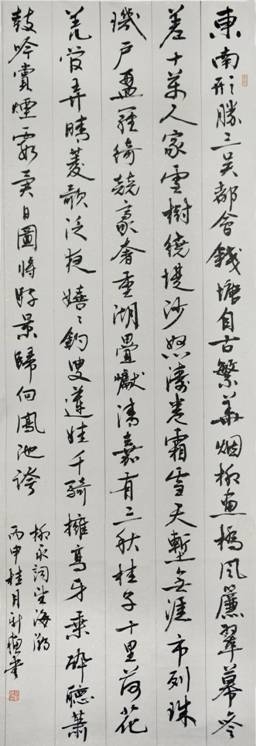 東南形勝三吳都會錢塘自古繁華烟柳畫橋風簾翠幕參
差十萬人家雲樹繞堤沙怒濤卷霜雪天塹無涯市列珠
璣戶盈羅綺競豪奢重湖疊巘清嘉有三秋桂子十里荷花
羌管弄晴菱歌泛夜嬉々釣叟蓮娃千騎擁高牙乘醉聽蕭
鼓吟賞煙霞異日圖將好景歸向鳳池誇
柳永詞望海潮
丙申桂月書